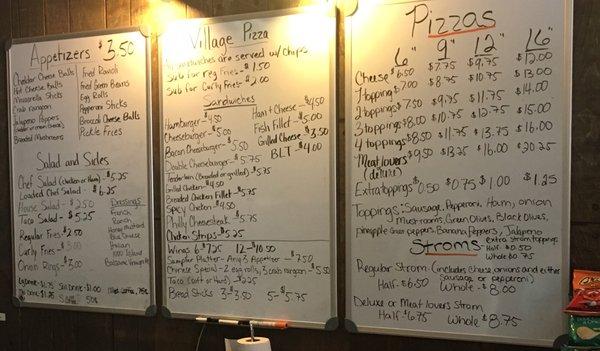 Appetizers $3.50
Cheddar Cheese Balls
Hot Cheese Balls
Mozzarella Sticks
Crab rangoon
Jalapeno Poppers
Breaded Mushrooms
Fried Ravioli
Fried Green Beans
Egg Rolls
Pepperoni Sticks
Broccoli Cheese Balls
Pickle Fries
Salad and Sides
Chef Salad (chicken or Ham) - $5.25
Loaded Chef Salad - $6.25
House Salad - $2.50
Taco Salad - $5.25
Regular Fries - $2.50
Curly Fries - $3.00
Onion Rings - $3.00
Dressings
French
Ranch
Honey Mustard
Blue Cheese
Italian
1000 Island
Village Pizza
All Sandwiches are served w/ chips.
Sub for reg Fries - $1.50
Sub for Curly Fries - $2.00
Sandwiches
Hamburger - $4.50
Cheeseburger - $5.00
Bacon Cheeseburger - $5.50
Double Cheeseburger - $5.75
Tenderloin (Breaded or grilled) - $5.75
Grilled Chicken - $4.50
Breaded Chicken Fillet - $5.75
Spicy Chicken - $4.50
Philly Cheesesteak - $5.75
Chicken Strips - $5.25
Ham + Cheese - $4.50
Fish Fillet - $5.00
Grilled Cheese - $3.50
BLT - $4.00
Wings 6-7.25 12-10.50
Sampler Platter - Any 3 Appetizer - $7.50
Chinese Special - 2 egg rolls, 3 crab rangoon - $5.50
Taco (soft or Hard) - $2.25
Bread Sticks 3-3.50 5-$5.75
Pizzas
6" 9" 12" 16"
Cheese $6.50 $7.75 $9.75 $12.00
1 topping $7.00 $8.75 $10.75 $13.00
2 toppings $7.50 $9.75 $11.75 $14.00
3 toppings $8.00 $10.75 $12.75 $15.00
4 toppings $8.50 $11.75 $13.75 $16.00
Meat lovers $9.50 $13.25 $16.00 $20.25
(deluxe)
Extra toppings $0.50 $0.75 $1.00 $1.25
Toppings: Sausage, Pepperoni, Ham, onion
Mushrooms, Green Olives, Black Olives,
pineapple Green peppers, Banana Peppers, Jalapeno
Stroms
extra strom toppings
Half $0.50
Whole $0.75
Regular Strom (includes cheese, onions and either
sausage or pepperoni)
Half - $6.50 Whole - $8.00
Deluxe or Meat lovers Strom
Half - $6.75 Whole - $8.75